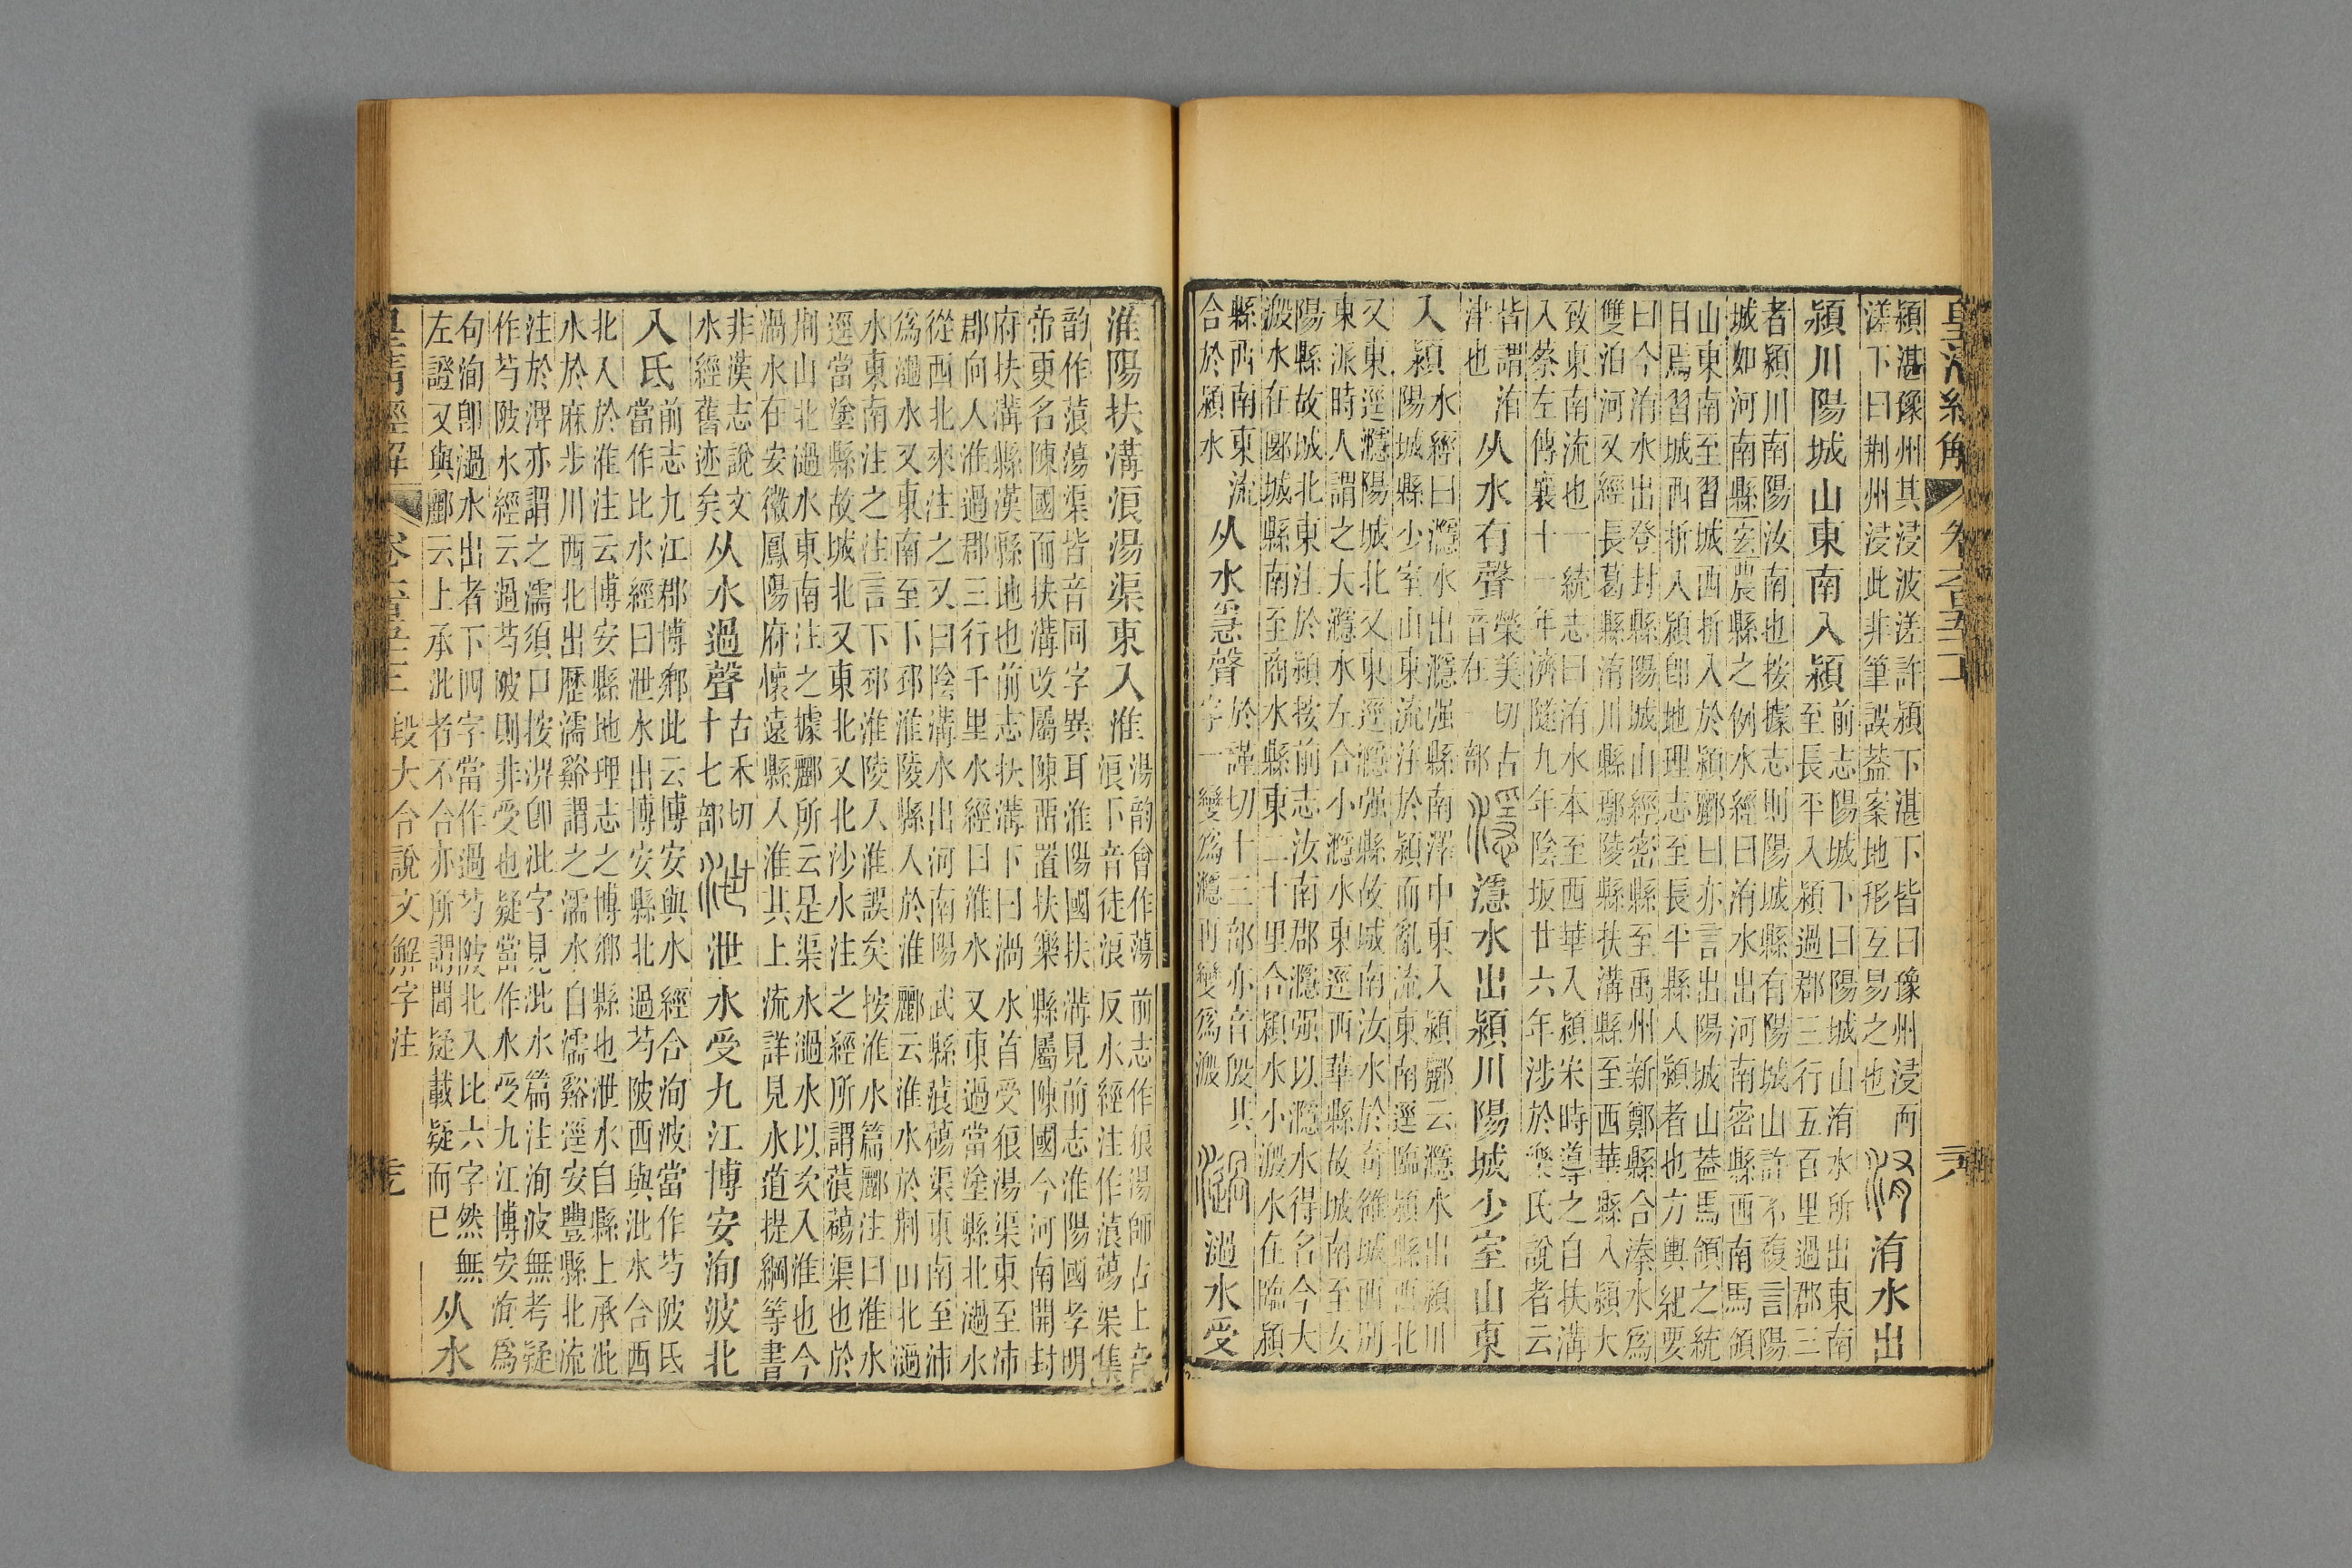 潁湛豫州其浸波溠許潁下湛下皆曰豫州浸而
溠下曰荆州浸此非筆誤葢案地形互易之也
洧水出
潁川陽城山東南入潁
前志陽城下曰陽城山洧水所出東南
至長平入潁過郡三行五百里過郡三
者潁川南陽汝南也按據志則陽城縣有陽城山許不復言陽
城如河南縣宏農縣之例水經曰洧水出河南密縣西南馬領
山東南至習城西折入於潁酈曰亦言出陽城山葢馬領之統
目焉習城西折入潁卽地理志至長平縣入潁者也方輿紀要
曰今洧水出登封縣陽城山經密縣至禹州新鄭縣合溱水爲
雙洎河又經長葛縣洧川縣鄢陵縣扶溝縣至西華縣入潁大
致東南流也一統志曰洧水本至西華入潁宋時導之自扶溝
入蔡左傳襄十一年濟隧九年陰坂廿六年涉於樂氏說者云
皆謂洧
津也
从水有聲
榮美切古
音在一部
濦水出潁川陽城少室山東
入潁
水經曰濦水出濦强縣南澤中東入潁酈云濦水出潁川
陽城縣少室山東流注於潁而亂流東南逕臨潁縣西北
又東逕濦陽城北又東逕濦强縣故城南汝水於奇雒城西別
東派時人謂之大濦水左合小濦水東逕西華縣故城南至女
陽縣故城北東注於潁按前志汝南郡濦强以濦水得名今大
溵水在郾城縣南至商水縣東二十里合潁水小溵水在臨潁
縣西南東流
合於潁水
从水㥯聲
於謹切十三部亦音殷其
字一變爲濦再變爲溵
濄水受
淮陽扶溝浪湯渠東入淮
湯韵會作蕩前志作狼湯師古上音
浪下音徒浪反水經注作蒗蕩渠集
韵作蒗蕩渠皆音同字異耳淮陽國扶溝見前志淮陽國孝明
帝更名陳國而扶溝改屬陳畱置扶樂縣屬陳國今河南開封
府扶溝縣漢縣地也前志扶溝下曰渦水首受狼湯渠東至沛
郡向入淮過郡三行千里水經曰淮水又東過當塗縣北濄水
從西北來注之又曰陰溝水出河南陽武縣蒗蕩渠東南至沛
爲濄水又東南至下邳淮陵縣入於淮酈云淮水於荆山北濄
水東南注之注言下邳淮陵入淮誤矣按淮水篇酈注曰淮水
逕當塗縣故城北又東北又北沙水注之經所謂蒗蕩渠也於
荆山北濄水東南注之據酈所云是渠水濄水以次入淮也今
濄水在安徽鳳陽府懷遠縣入淮其上流詳見水道提綱等書
非漢志說文
水經舊迹矣
从水過聲
古禾切
十七部
泄水受九江博安洵波北
入氐
前志九江郡博鄉此云博安與水經合洵波當作芍陂氐
當作比水經曰泄水出博安縣北過芍陂西與沘水合西
北入於淮注云博安縣地理志之博鄉縣也泄水自縣上承沘
水於麻步川西北出歷濡谿謂之濡水自濡谿逕安豐縣北流
注於淠亦謂之濡須口按淠卽沘字見沘水篇注洵波無考疑
作芍陂水經云過芍陂則非受也疑當作水受九江博安洵爲
句洵卽濄水出者下四字當作過芍陂北入比六字然無
左證又與酈云上承沘者不合亦所謂聞疑載疑而已
从水
皇清經解
段大令說文解字注